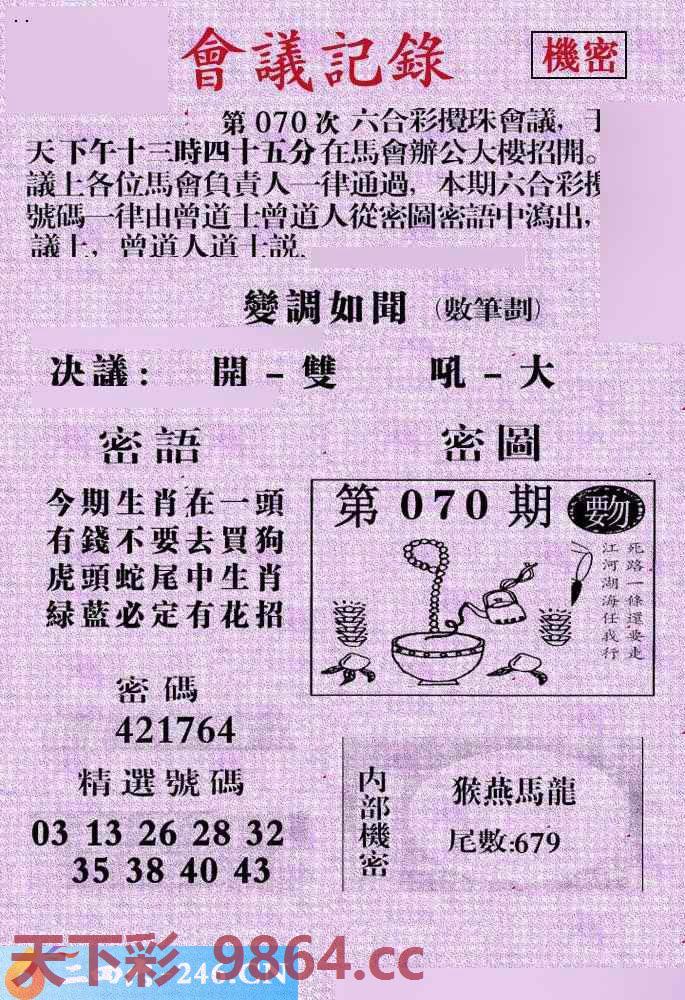 會議記錄
機密
第 070 次 六合彩攪珠會議，于
天下午十三時四十五分在馬會辦公大樓招開。
議上各位馬會負責人一律通過，本期六合彩攪
號碼一律由曾道士曾道人從密圖密語中瀉出，
議上，曾道人道士説
變調如聞（數筆劃）
决議： 開－雙 吼－大
密語
今期生肖在一頭
有錢不要去買狗
虎頭蛇尾中生肖
緑藍必定有花招
密碼
421764
精選號碼
03 13 26 28 32
35 38 40 43
密圖
第 070 期
死路一條還要走
江河湖海任我行
内部機密
猴燕馬龍
尾數:679
天下彩 9864.cc
246.CN